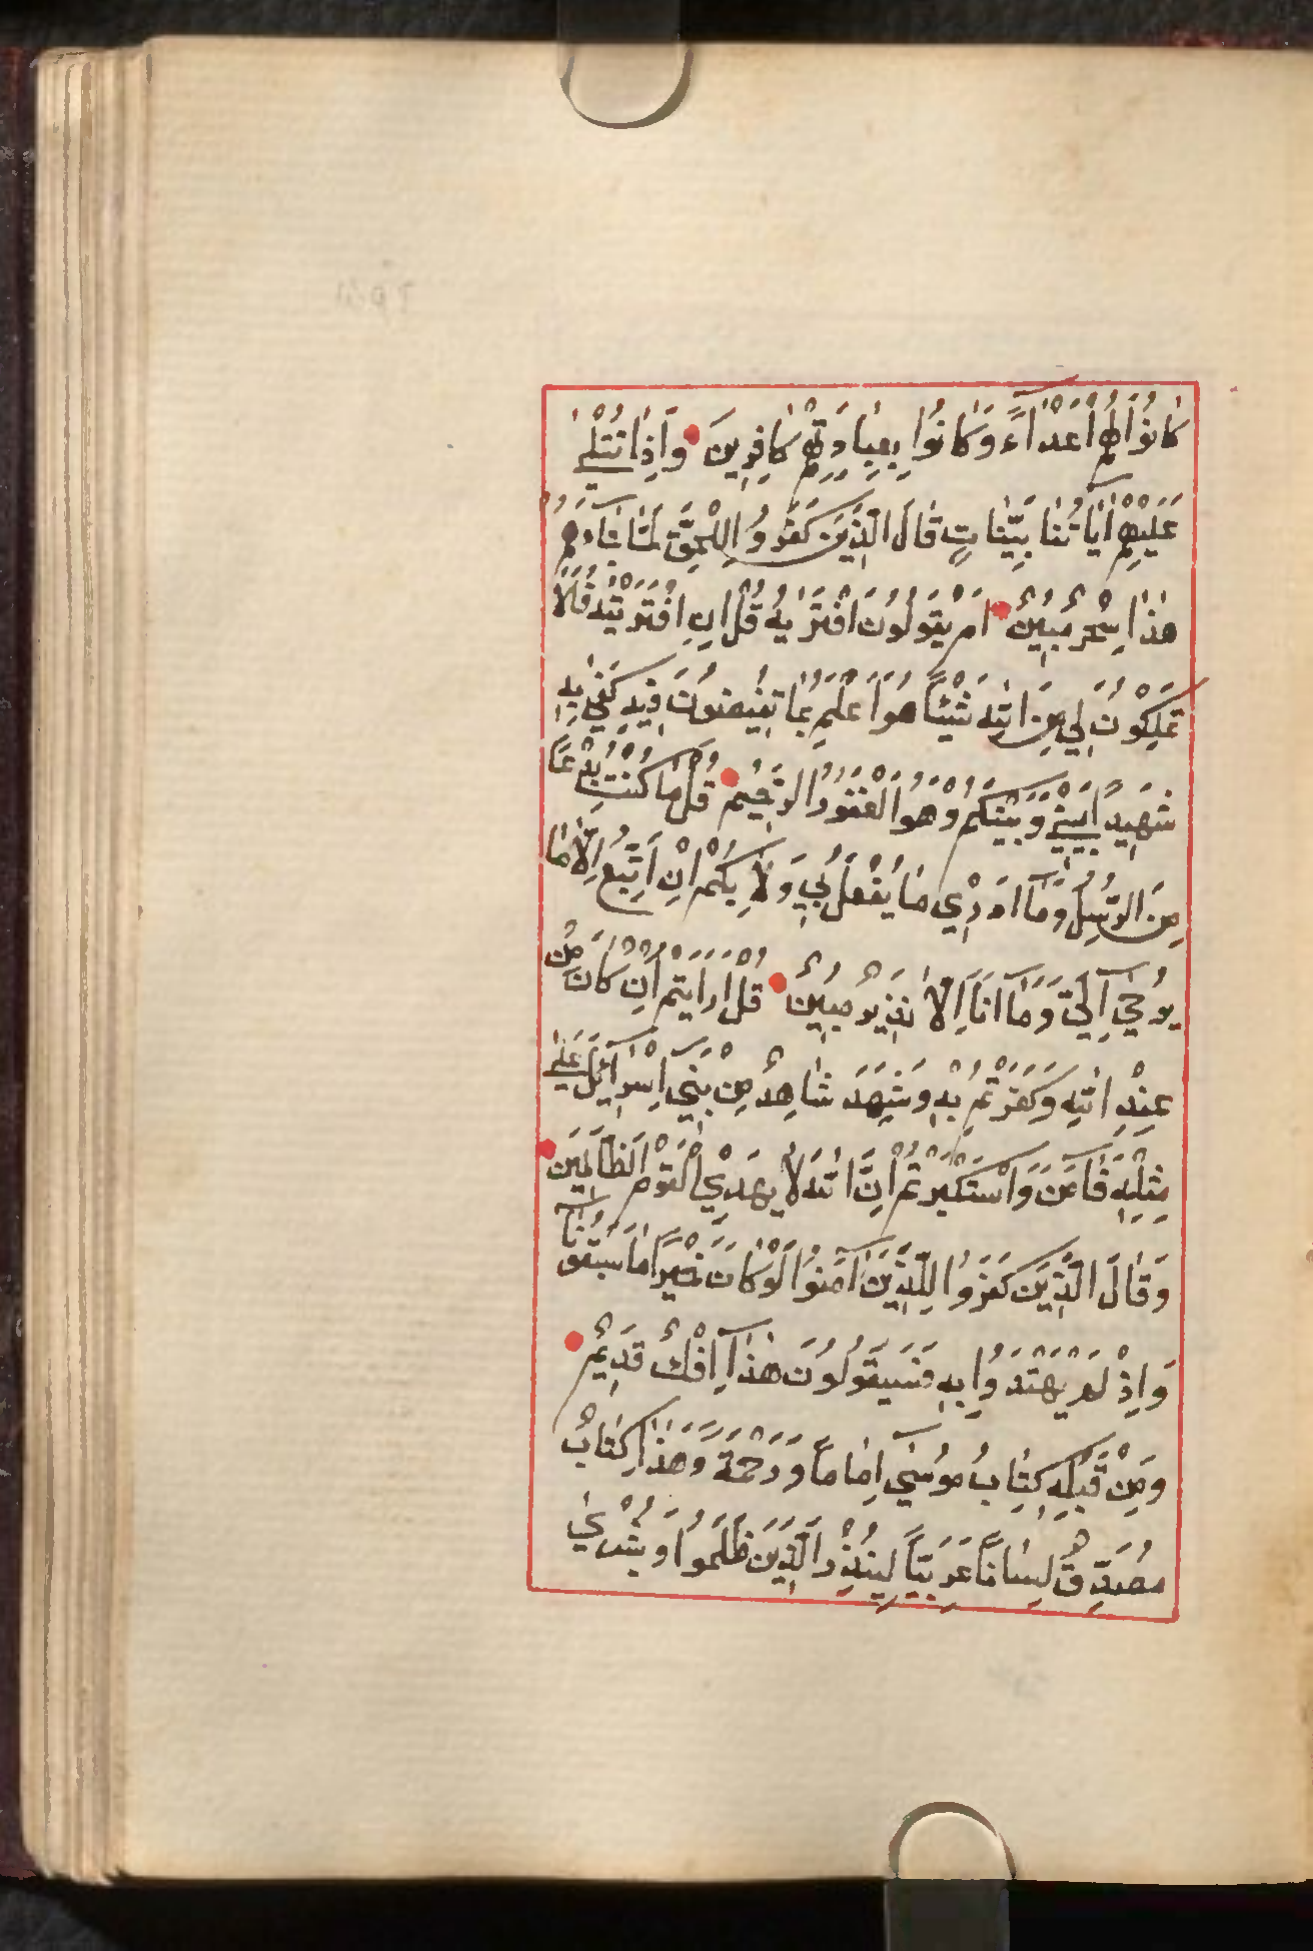 كَانُوا لَهُمْ أَعْدَاءً وَكَانُوا بِعِبَادَتِهِمْ كَافِرِينَ وَإِذَا تُتْلَى
عَلَيْهِمْ اٰيَاتُنَا بَيِّنَاتٍ قَالَ الَّذِينَ كَفَرُوا لِلْحَقِّ لَمَّا جَاءَهُمْ
هٰذَا سِحْرٌ مُبِينٌ اَمْ يَقُولُونَ افْتَرٰيهُ قُلْ اِنِ افْتَرَيْتُهُ فَلَا
تَمْلِكُونَ لِي مِنَ اللّٰهِ شَيْئًا هُوَ اَعْلَمُ بِمَا تُفِيضُونَ فِيهِ كَفٰى بِهِ
شَهِيدًا بَيْنِي وَبَيْنَكُمْ وَهُوَ الْغَفُورُ الرَّحِيمُ قُلْ مَا كُنْتُ بِدْعًا
مِنَ الرُّسُلِ وَمَا اَدْرِي مَا يُفْعَلُ بِي وَلَا بِكُمْ اِنْ اَتَّبِعُ اِلَّا مَا
يُوحٰى اِلَيَّ وَمَا اَنَا اِلَّا نَذِيرٌ مُبِينٌ قُلْ اَرَاَيْتُمْ اِنْ كَانَ مِنْ
عِنْدِ اللّٰهِ وَكَفَرْتُمْ بِهِ وَشَهِدَ شَاهِدٌ مِنْ بَنِي اِسْرَائِلَ عَلٰى
مِثْلِهِ فَاٰمَنَ وَاسْتَكْبَرْتُمْ اِنَّ اللّٰهَ لَا يَهْدِي الْقَوْمَ الظَّالِمِينَ
وَقَالَ الَّذِينَ كَفَرُوا لِلَّذِينَ اٰمَنُوا لَوْ كَانَ خَيْرًا مَا سَبَقُونَا
وَاِذْ لَمْ يَهْتَدُوا بِهِ فَسَيَقُولُونَ هٰذَا اِفْكٌ قَدِيمٌ
وَمِنْ قَبْلِهِ كِتَابُ مُوسٰى اِمَامًا وَرَحْمَةً وَهٰذَا كِتَابٌ
مُصَدِّقٌ لِسَانًا عَرَبِيًّا لِيُنْذِرَ الَّذِينَ ظَلَمُوا وَبُشْرٰى